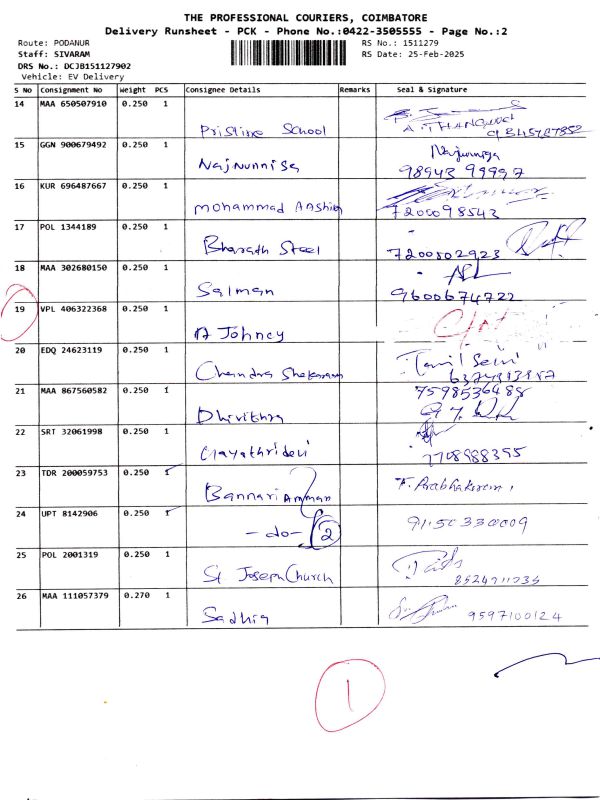 THE PROFESSIONAL COURIERS, COIMBATORE
Delivery Runsheet - PCK - Phone No.:0422-3505555 - Page No.:2
Route: PODANUR
RS No.: 1511279
Staff: SIVARAM
RS Date: 25-Feb-2025
DRS No.: DCJB151127902
Vehicle: EV Delivery
S No Consignment No Weight PCS Consignee Details Remarks Seal & Signature
14 MAA 650507910 0.250 1 Pristine School A.THANGARAJ
15 GGN 900679492 0.250 1 Najnunnisa 98943 99997
16 KUR 696487667 0.250 1 Mohammad Aashiq 7200098543
17 POL 1344189 0.250 1 Bharath Steel 7200802923
18 MAA 302680150 0.250 1 Salman 9600674722
19 VPL 406322368 0.250 1 A Johney
20 EDQ 24623119 0.250 1 Chandra Shekaran Tamil Selvi
21 MAA 867560582 0.250 1 Dhivithra 7598536488
22 SRT 32061998 0.250 1 Gayathridevi 7708988355
23 TDR 200059753 0.250 1 Bannari Amman
24 UPT 8142906 0.250 1 -do- 2
25 POL 2001319 0.250 1 St Joseph Church
26 MAA 111057379 0.270 1 Sadhig 9597100124
1